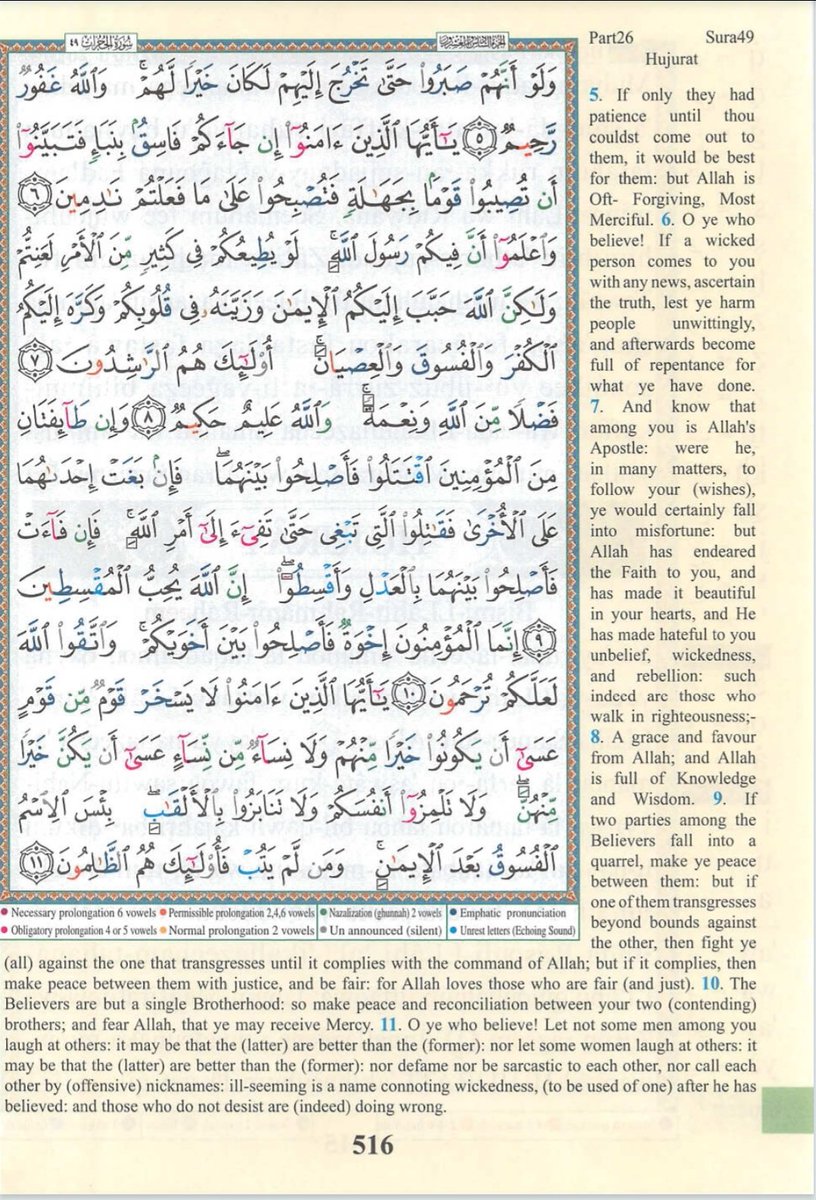 سُورَةُ الحُجُرَات ٤٩
الجزء السادس والعشرون
وَلَوْ أَنَّهُمْ صَبَرُوا۟ حَتَّىٰ تَخْرُجَ إِلَيْهِمْ لَكَانَ خَيْرًا لَّهُمْ ۚ وَٱللَّهُ غَفُورٌ
رَّحِيمٌ ٥ يَـٰٓأَيُّهَا ٱلَّذِينَ ءَامَنُوٓا۟ إِن جَآءَكُمْ فَاسِقٌۢ بِنَبَإٍ فَتَبَيَّنُوٓا۟
أَن تُصِيبُوا۟ قَوْمًۢا بِجَهَـٰلَةٍ فَتُصْبِحُوا۟ عَلَىٰ مَا فَعَلْتُمْ نَـٰدِمِينَ ٦
وَٱعْلَمُوٓا۟ أَنَّ فِيكُمْ رَسُولَ ٱللَّهِ ۚ لَوْ يُطِيعُكُمْ فِى كَثِيرٍ مِّنَ ٱلْأَمْرِ لَعَنِتُّمْ
وَلَـٰكِنَّ ٱللَّهَ حَبَّبَ إِلَيْكُمُ ٱلْإِيمَـٰنَ وَزَيَّنَهُۥ فِى قُلُوبِكُمْ وَكَرَّهَ إِلَيْكُمُ
ٱلْكُفْرَ وَٱلْفُسُوقَ وَٱلْعِصْيَانَ ۚ أُو۟لَـٰٓئِكَ هُمُ ٱلرَّٰشِدُونَ ٧
فَضْلًا مِّنَ ٱللَّهِ وَنِعْمَةً ۚ وَٱللَّهُ عَلِيمٌ حَكِيمٌ ٨ وَإِن طَآئِفَتَانِ
مِنَ ٱلْمُؤْمِنِينَ ٱقْتَتَلُوا۟ فَأَصْلِحُوا۟ بَيْنَهُمَا ۖ فَإِنۢ بَغَتْ إِحْدَىٰهُمَا
عَلَى ٱلْأُخْرَىٰ فَقَـٰتِلُوا۟ ٱلَّتِى تَبْغِى حَتَّىٰ تَفِىٓءَ إِلَىٰٓ أَمْرِ ٱللَّهِ ۚ فَإِن فَآءَتْ
فَأَصْلِحُوا۟ بَيْنَهُمَا بِٱلْعَدْلِ وَأَقْسِطُوٓا۟ ۖ إِنَّ ٱللَّهَ يُحِبُّ ٱلْمُقْسِطِينَ
٩ إِنَّمَا ٱلْمُؤْمِنُونَ إِخْوَةٌ فَأَصْلِحُوا۟ بَيْنَ أَخَوَيْكُمْ ۚ وَٱتَّقُوا۟ ٱللَّهَ
لَعَلَّكُمْ تُرْحَمُونَ ١٠ يَـٰٓأَيُّهَا ٱلَّذِينَ ءَامَنُوا۟ لَا يَسْخَرْ قَوْمٌ مِّن قَوْمٍ
عَسَىٰٓ أَن يَكُونُوا۟ خَيْرًا مِّنْهُمْ وَلَا نِسَآءٌ مِّن نِّسَآءٍ عَسَىٰٓ أَن يَكُنَّ خَيْرًا
مِّنْهُنَّ ۖ وَلَا تَلْمِزُوٓا۟ أَنفُسَكُمْ وَلَا تَنَابَزُوا۟ بِٱلْأَلْقَـٰبِ ۖ بِئْسَ ٱلِٱسْمُ
ٱلْفُسُوقُ بَعْدَ ٱلْإِيمَـٰنِ ۚ وَمَن لَّمْ يَتُبْ فَأُو۟لَـٰٓئِكَ هُمُ ٱلظَّـٰلِمُونَ ١١
Necessary prolongation 6 vowels Permissible prolongation 2,4,6 vowels Nazalization (ghunnah) 2 vowels Emphatic pronunciation
Obligatory prolongation 4 or 5 vowels Normal prolongation 2 vowels Un announced (silent) Unrest letters (Echoing Sound)
Part26 Sura49
Hujurat
5. If only they had
patience until thou
couldst come out to
them, it would be best
for them: but Allah is
Oft- Forgiving, Most
Merciful. 6. O ye who
believe! If a wicked
person comes to you
with any news, ascertain
the truth, lest ye harm
people unwittingly,
and afterwards become
full of repentance for
what ye have done.
7. And know that
among you is Allah's
Apostle: were he,
in many matters, to
follow your (wishes),
ye would certainly fall
into misfortune: but
Allah has endeared
the Faith to you, and
has made it beautiful
in your hearts, and He
has made hateful to you
unbelief, wickedness,
and rebellion: such
indeed are those who
walk in righteousness;-
8. A grace and favour
from Allah; and Allah
is full of Knowledge
and Wisdom. 9. If
two parties among the
Believers fall into a
quarrel, make ye peace
between them: but if
one of them transgresses
beyond bounds against
the other, then fight ye
(all) against the one that transgresses until it complies with the command of Allah; but if it complies, then
make peace between them with justice, and be fair: for Allah loves those who are fair (and just). 10. The
Believers are but a single Brotherhood: so make peace and reconciliation between your two (contending)
brothers; and fear Allah, that ye may receive Mercy. 11. O ye who believe! Let not some men among you
laugh at others: it may be that the (latter) are better than the (former): nor let some women laugh at others: it
may be that the (latter) are better than the (former): nor defame nor be sarcastic to each other, nor call each
other by (offensive) nicknames: ill-seeming is a name connoting wickedness, (to be used of one) after he has
believed: and those who do not desist are (indeed) doing wrong.
516